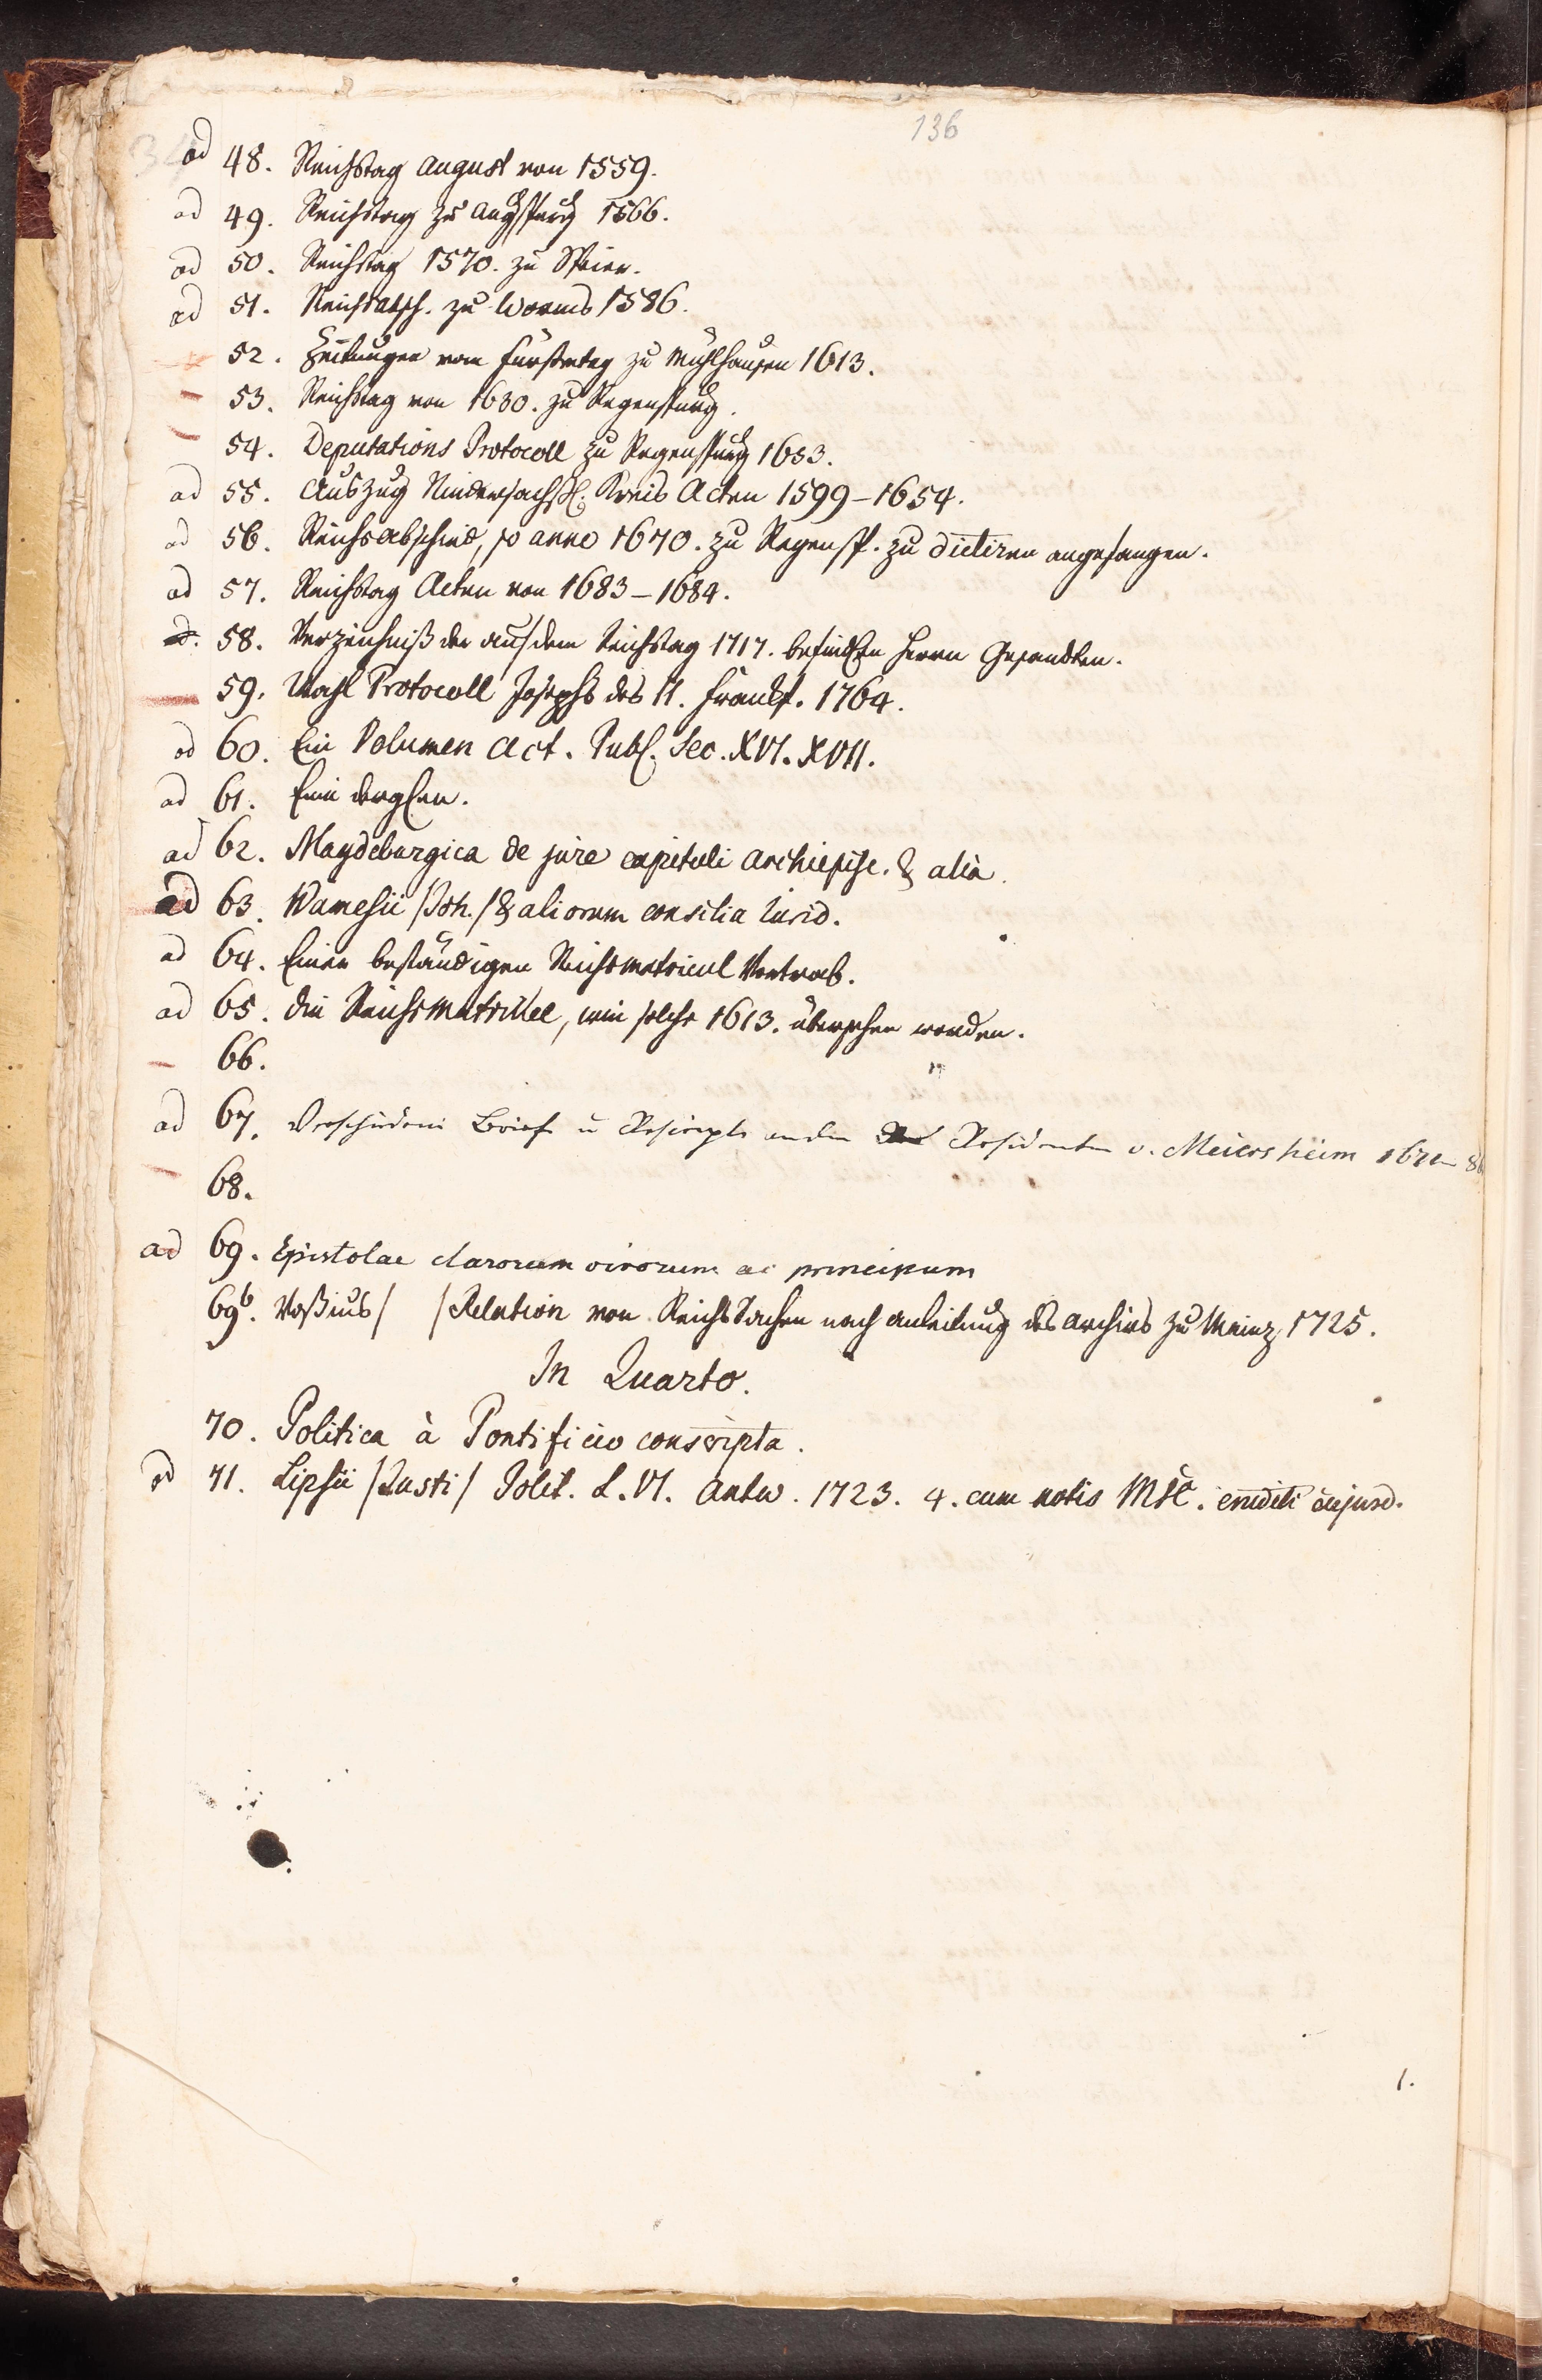 136
34
ad 48. Reichstag August von 1559.
ad 49. Reichstag zu Augspurg 1566.
ad 50. Reichstag 1570. zu Speier.
ad 51. Reichsabsch. zu Worms 1586.
52. Zeitungen vom Fürstentag zu Mühlhausen 1613.
53. Reichstag von 1630. zu Regenspurg.
54. Deputations Protocoll zu Regenspurg 1653.
ad 55. Auszug Niedersächsl. Kreis Acten 1599–1654.
ad 56. Reichsabschied, so anno 1670. zu Regensp. zu dictiren angefangen.
ad 57. Reichstag Acten von 1683–1684.
ad. 58. Verzeichniß der auf dem Reichstag 1717. befindlen Herrn Gesandten.
59. Wahl Protocoll Josephs des II. Frankf. 1764.
ad 60. Ein Volumen Act. Publ. Sec. XVI. XVII.
ad 61. Ein derglen.
ad 62. Magdeburgica de jure capituli archiepisc. & alia.
ad 63. Wamesii /Joh./ & aliorum consilia Iurid.
ad 64. Einer beständigen Reichsmatricul Vortrab.
ad 65. Die Reichsmatrikel, wie solche 1613. übersehen worden.
66.
ad 67. Verschiedene Briefe u Rescripte an den Residenten v. Meiersheim 1671–86
68.
ad 69. Epistolae clarorum virorum ac principum
69b. Voßius/ /Relation von Reichs Sachen nach Anleitung des Archivs zu Mainz 1725.
In Quarto.
70. Politica à Pontificio conscripta.
ad 71. Lipsii /Justi/ Polit. L. VI. Antw. 1723. 4. cum notis MSC. eruditi cujusd.
1.